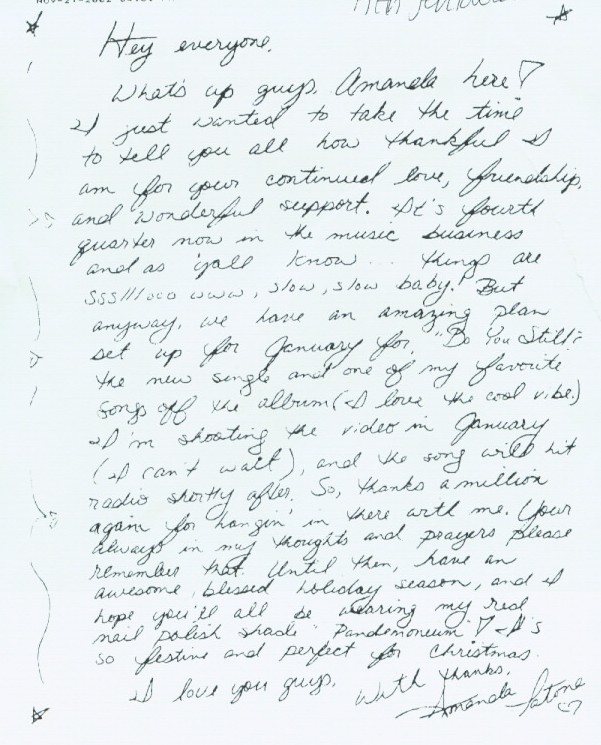 Hey everyone,
What's up guys, Amanda here
I just wanted to take the time
to tell you all how thankful I
am for your continued love, friendship,
and wonderful support. It's fourth
quarter now in the music business
and as y'all know... things are
sssllloooowww, slow, slow baby! But
anyway, we have an amazing plan
set up for January for, "Do You Still?"
the new single and one of my favorite
songs off the album (I love the cool vibe.)
I'm shooting the video in January
(I can't wait), and the song will hit
radio shortly after. So, thanks a million
again for hangin' in there with me. Your
always in my thoughts and prayers please
remember that. Until then, have an
awesome, blessed holiday season, and I
hope you'll all be wearing my red
nail polish shade "Pandemoneum" It's
so festive and perfect for Christmas.
I love you guys.
With thanks,
Amanda Latona